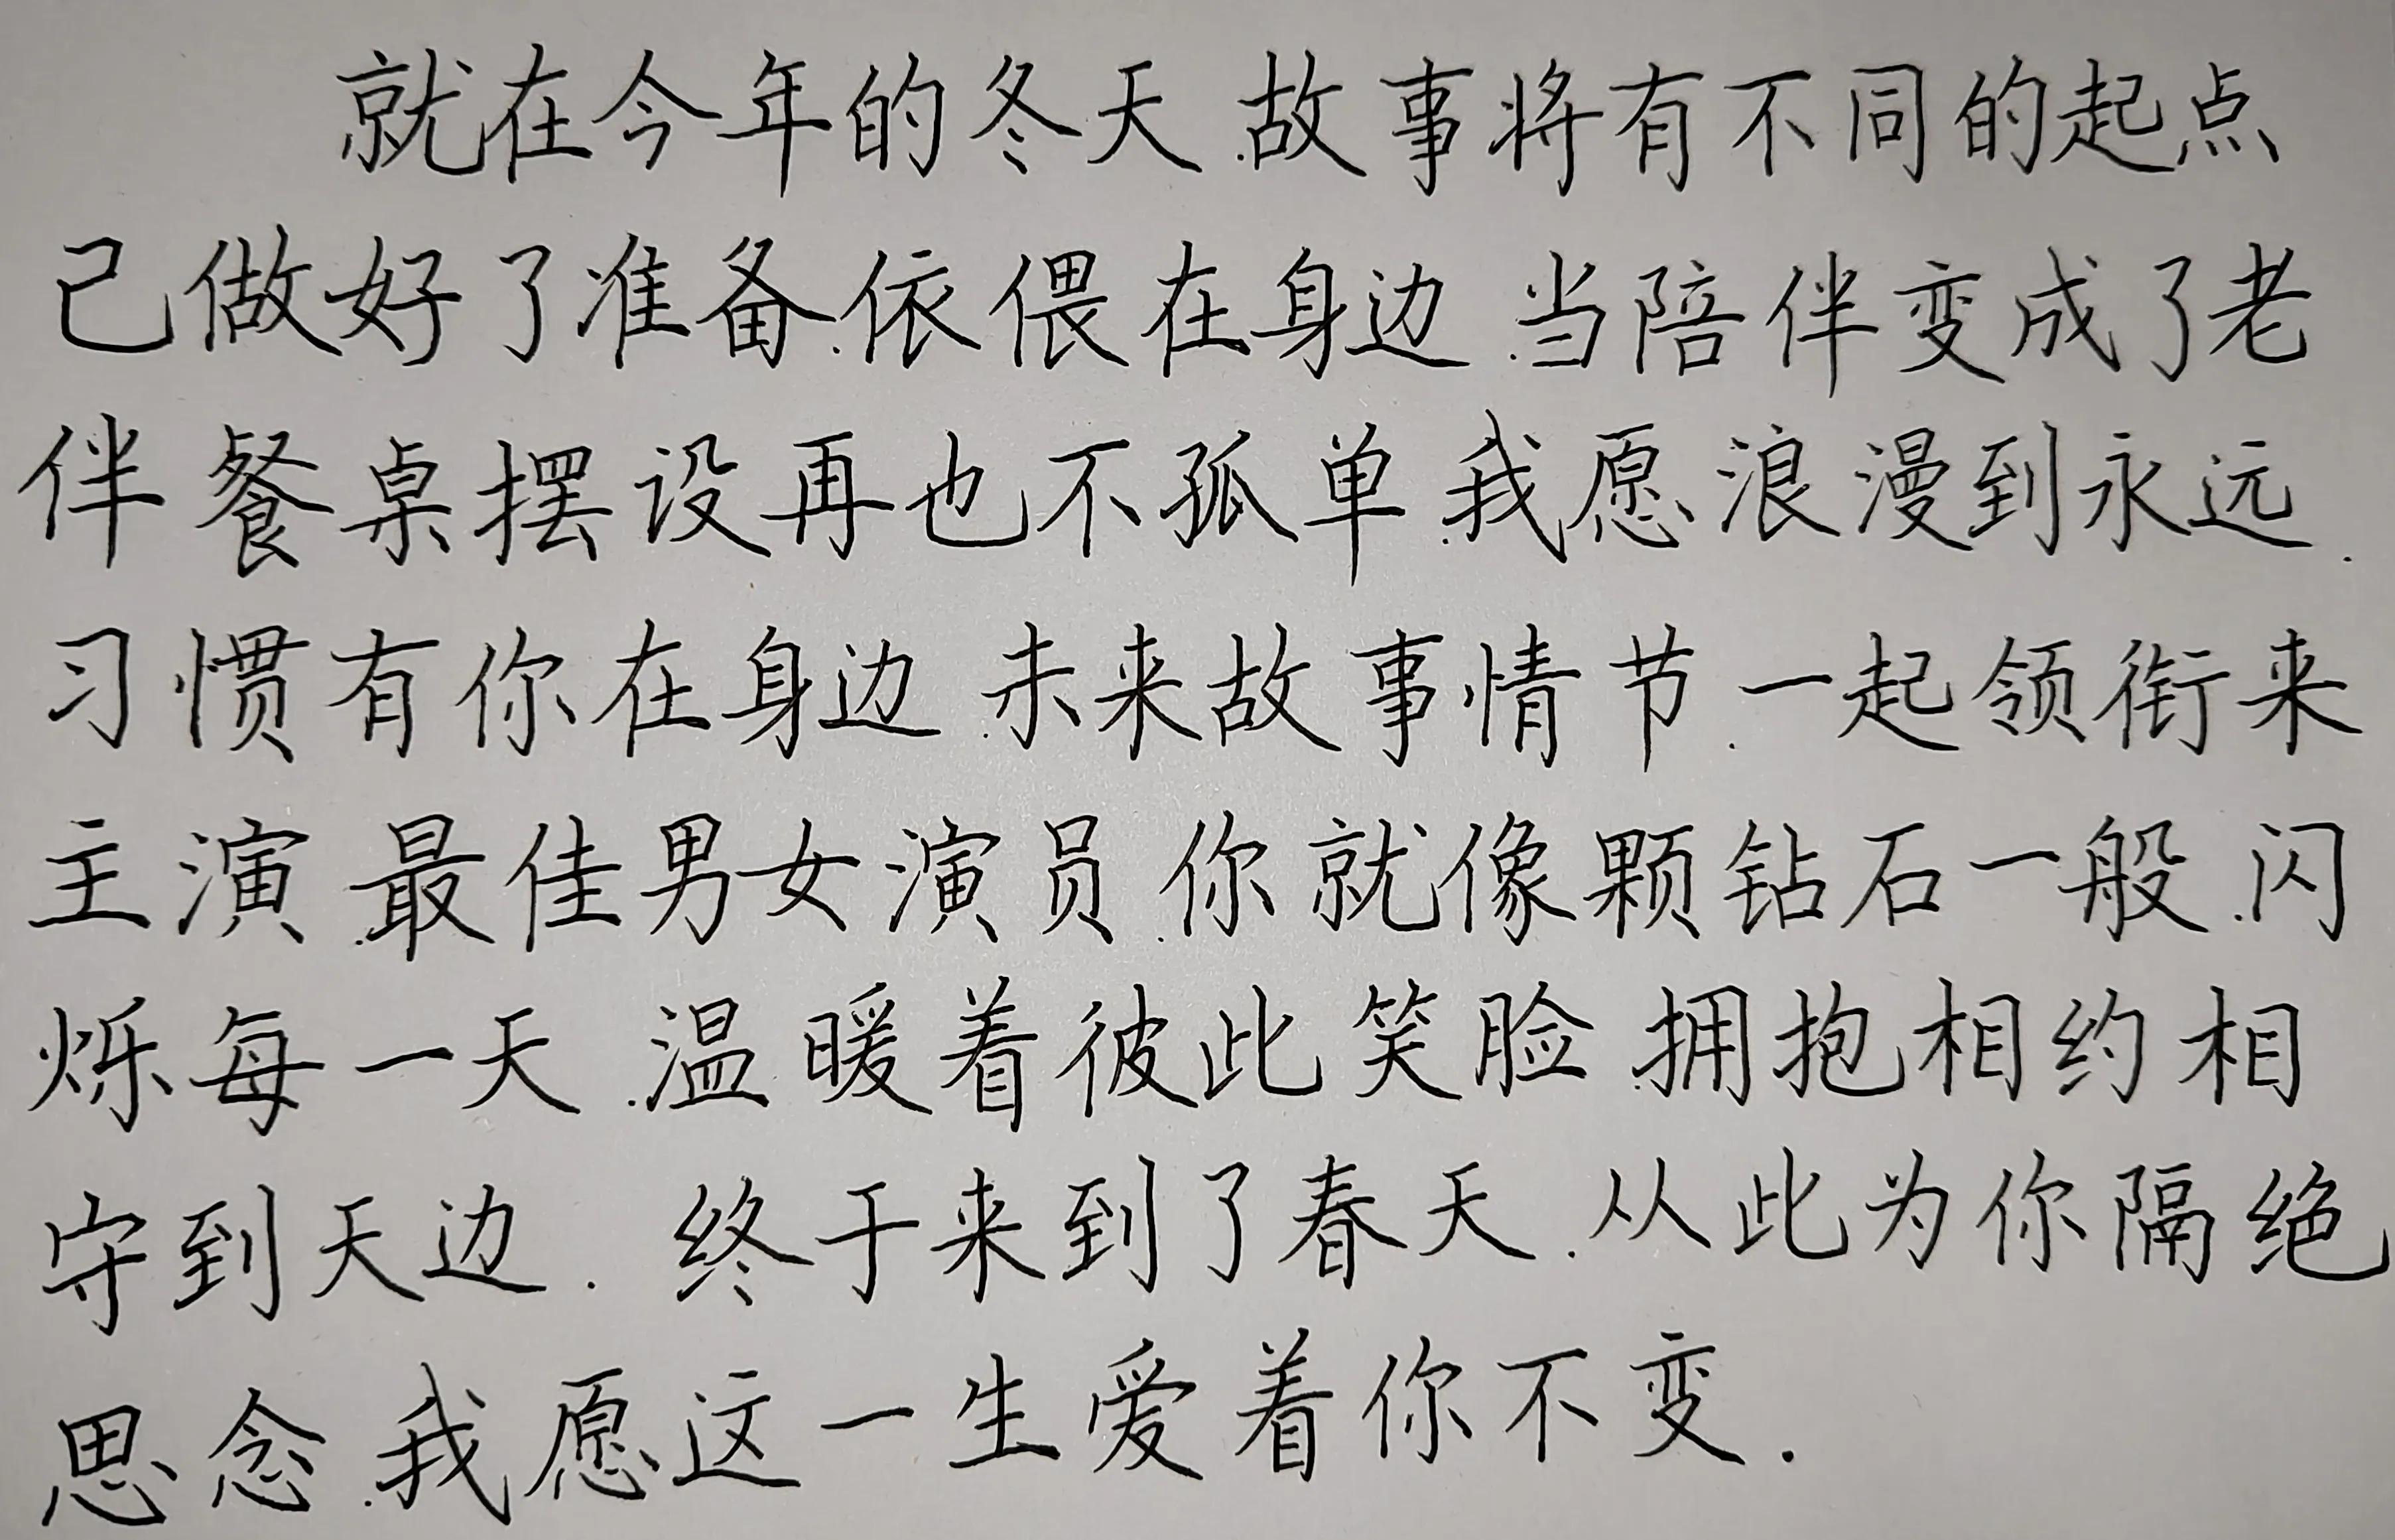 就在今年的冬天.故事将有不同的起点
已做好了准备.依偎在身边.当陪伴变成了老
伴餐桌摆设再也不孤单.我愿浪漫到永远.
习惯有你在身边.未来故事情节.一起领衔来
主演.最佳男女演员.你就像颗钻石一般.闪
烁每一天.温暖着彼此笑脸.拥抱相约相
守到天边.终于来到了春天.从此为你隔绝
思念.我愿这一生爱着你不变.